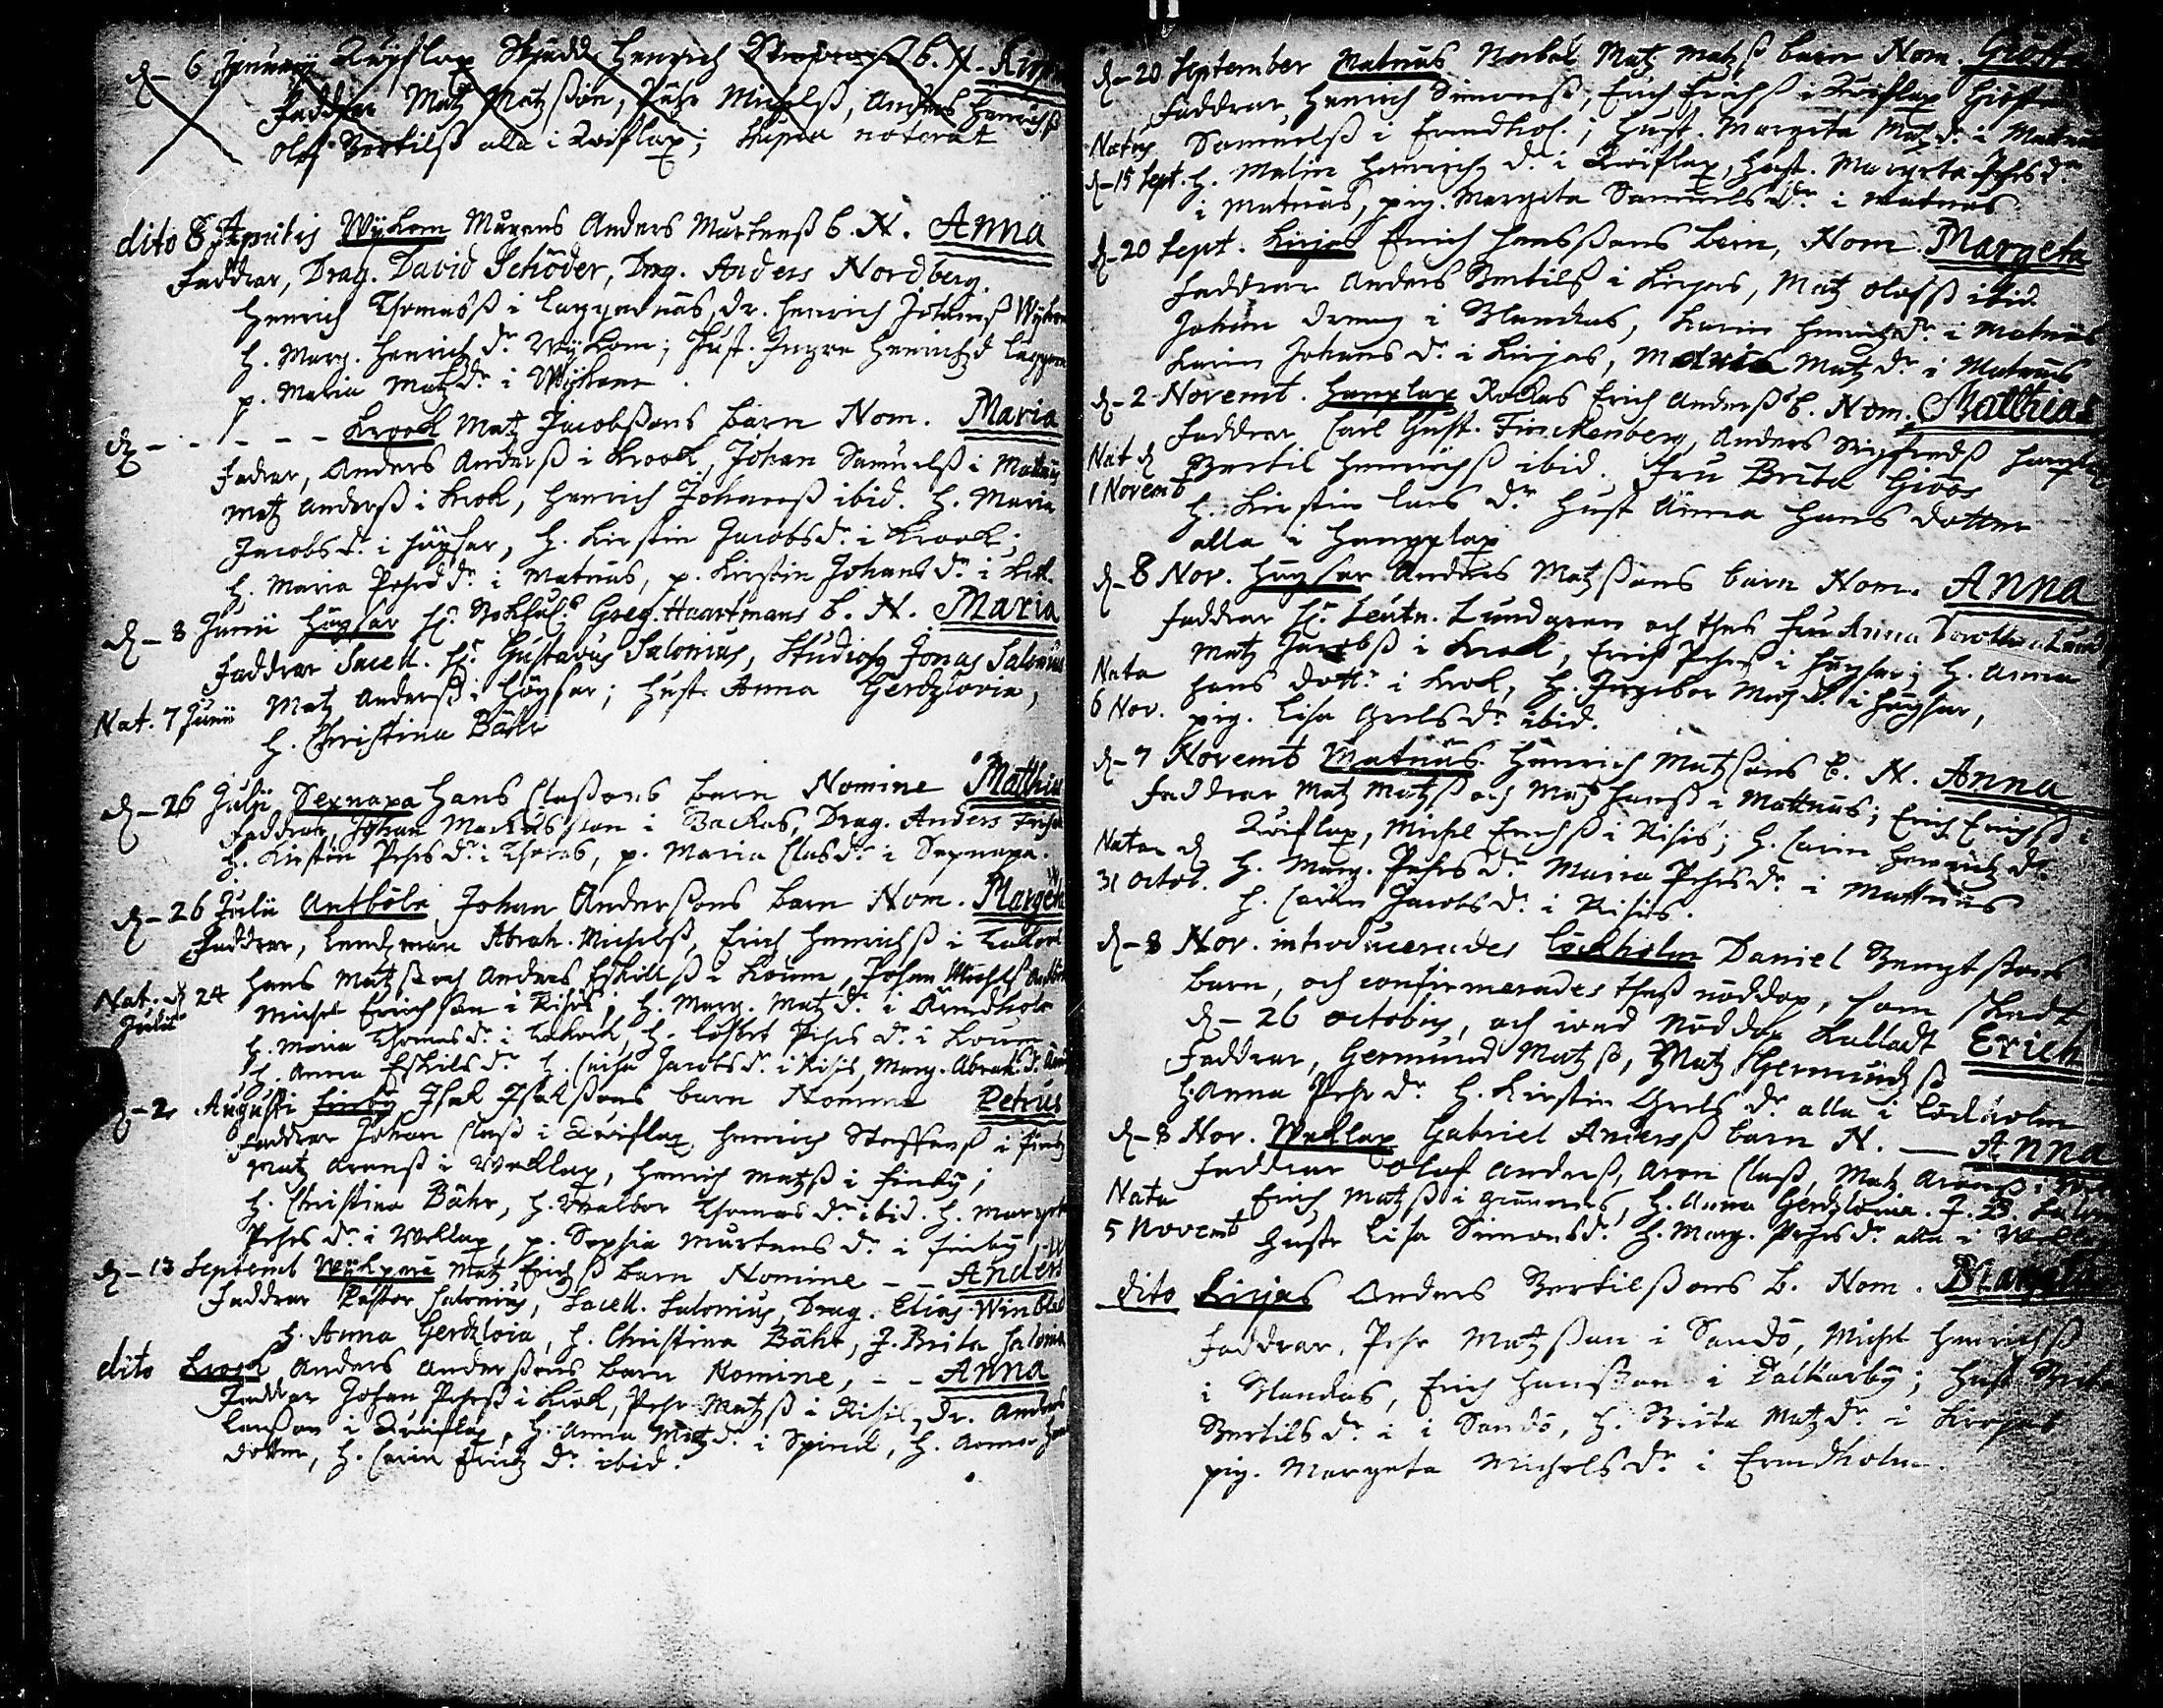 d. 6 January Qwiflax Skadd Henrich b. N. Kirst
Faddrar Matz Matzßon, Pehr Michelß, Anders Henrichß
Olof Bertilß alla i Qwiflax; supra noterat
dito 8 Aprilis Wykom Murens Anders Murtenß b. N. Anna
Faddrar, Drag. David Schöder, Drg. Anders Nordberg.
Henrich Thomasß i Laggarnäs, Dr. Henrich Johanß Wykom
H. Marg. Henrichs dr. Wykom; Hust. Ingre Henrichsd Laggar
p. Malin Matz dr. i Wykom.
d. - - - - Krook Matz Jacobßons barn Nom. Maria
Fadrar, Anders Anderß i Krook, Johan Samuelß i Matnäs
Matz Anderß i Krok, Henrich Johanß ibid. H. Maria
Jacobs dr. i Höysar, H. Kirstin Jacobs dr. i Krook;
H. Maria Pehrs dr. i Matnäs, p. Kirstin Johans dr. i
d. 8 Junii Höysar Hr. Greg. Haartmans b. N. Maria
Faddrar Sacell. Hr. Gustavus Salonius, Studiosus Jonas Salonius
Nat. 7 Junii Matz Anderß i Höysar; Hust. Anna Gerdzlovia,
H. Christina Bähr
d. 26 Julii Sexnapa Hans Claßons barn Nomine Mathias
Faddrar Johan Markusson i Backas, Drag. Anders
H. Kirstin Pehrs dr. i Thoras, p. Maria Clas dr. i Sexnapa.
d. 26 Julii Antböle Johan Anderßons barn Nom. Margeta
Faddrar, Lendzman Abrah. Michelß, Erich Henrichß i
Nat. d. 24 Julii Hans Matzß och Anders Eskillß i Koum, Johan Michelß Antböle
Michel Erichson i Risis, H. Marg. Matz dr. i Ärendholm
H. Maria Thomas dr. i H. Lisbet Pehrs dr. i Koum
H. Anna Eskils dr. H. Caisa Jacobs dr. i Risis, Marg. Abrah. dr.
d. 2. Augusti Finby Isak Isakßons barn Nomine Petrus
Faddrar Johan Claß i Qwiflax, Henrich Staffenß i Finby
Matz Arenß i Wallax, Henrich Matzß i Finby;
H. Christina Bähr, H. Walbor Thomas dr. ibid. H. Marget
Pehrs dr. i Wallax, p. Sophia Murtens dr. i Finby
d. 13 Septemb. Matz Erichß barn Nomine - - Anders
Faddrar Pastor Salonius, Sacell. Salonius, Drag. Elias Winblad
H. Anna Gerdzlovia, H. Christina Bähr, J. Brita Salonia
dito Krook Anders Anderßons barn Nomine, - - Anna
Faddrar Johan Pehrß i Krok, Pehr Matzß i Risis, Dr. Anders
Larßon i Qwiflax, H. Anna Matz dr. i Spink, H. Anna Hans
dotter, H. Carin Erichz dr. ibid.
d. 20 September Matnäs Matz Matzß barn Nom. Giöst
Faddrar Henrich Simonß, Erich Erichß i Qwiflax Giöst
Natus Samuelß i Erendhol.; Hust. Margeta Matz dr. i Matnäs
d. 15 Sept. H. Malin Henrichz dr. i Qwiflax, Hust. Margeta Pehrs dr.
i Matnäs, pig. Margeta Samuels dr. i Matnäs
d. 20 Sept. Kirjas Erich Hansßons barn, Nom. Margeta
Faddrar Anders Bertilß i Kirjas, Matz Olofß ibid.
Johan dreng i Slandas, Karin Henrichz dr. i Matnäs
Karin Johans dr. i Kirjas, Matz dr. i Matnäs
d. 2 Novemb. Hangslax Rockas Erich Anderß b. Nom. Matthias
Faddrar Carl Gust. Finckenberg, Anders Sigfredß Hangslax
Nat d. 1 Novemb Bertil Henrichß ibid. Fru Brita Giöös
H. Kirstin Lars dr. Hust. Anna Hans dotter
alla i Hangslax
d. 8 Nov. Höysar Anders Matzßons barn Nom. Anna
Faddrar Hr. Leutn. Lundgren och thes Fru Anna Dorothea Lund
Matz Jacobß i Krook, Erich Pehrß i Höysar; H. Anna
Nata 6 Nov. Hans dottr. i Krok, H. Ingebor Matz dr. i Höysar,
pig. Lisa Grels dr. ibid.
d. 7 Novemb Matnäs Henrich Matzsons b. N. Anna
Faddrar Matz Matzß och Matz Hansß i Mattnäs; Erich Erichß i
Nata d. 31 Octob. Qwiflax, Michel Erichß i Risis; H. Carin Henrichz dr.
H. Marg. Pehrs dr. Maria Pehrs dr. i Mattnäs
H. Carin Jacobs dr. i Risis.
d. 8 Nov. introducerades Löckholm Daniel Bengtßons
barn, och confirmerades theß nöddop, som skedt
d. 26 octobris, och war nöddop kalladt Erich
Faddrar, Germund Matzß, Matz Germundzß
H. Anna Pehrs dr. H. Kirstin Grels dr. alla i Löckholm
d. 8 Nov. Wallax Gabriel Anderß barn N. — Anna
Faddrar Olof Anderß, Aron Claß, Matz Aronß i
Nata 5 Novemb Erich Matzß i Gunnnäs, H. Anna Gerdzlovia. J. B. Salon
Hust. Lisa Simons dr. H. Marg. Pehrs dr. alla i Wallax
dito Kirjas Anders Bertilßons b. Nom. Margeta
Faddrar, Pehr Matzßon i Sandö, Michel Henrichß
i Slandas, Erich Hansßon i Dalkarby; Hust. Brita
Bertils dr. i i Sandö, H. Brita Matz dr. i Kirjas
pig. Margeta Michels dr. i Erendholm.